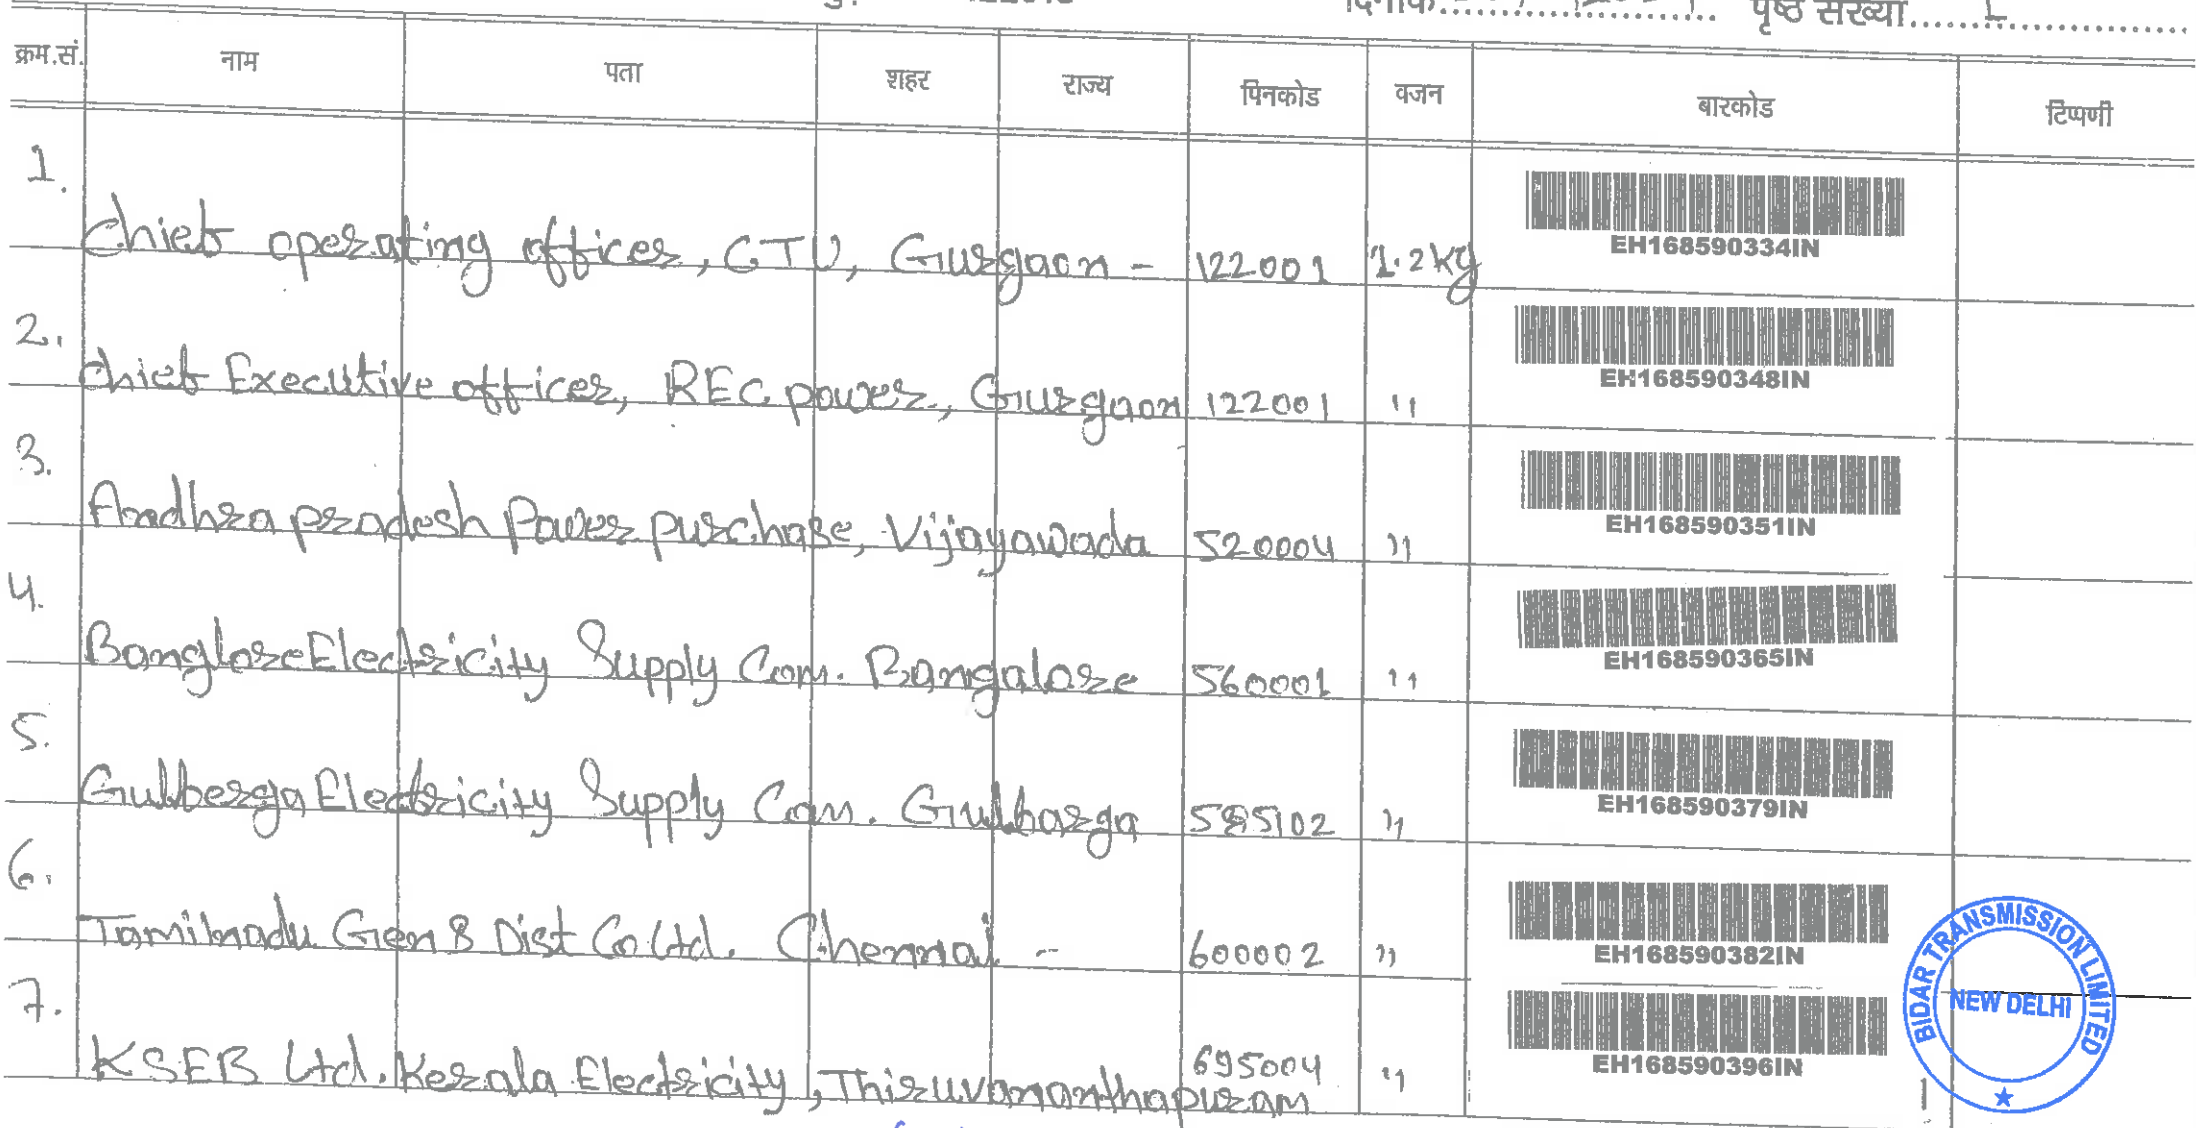 पृष्ठ संख्या.....1.....
क्रम.सं. नाम पता शहर राज्य पिनकोड वजन बारकोड टिप्पणी
1. Chief operating officer, CTU, Gurgaon - 122001 1.2kg
EH168590334IN
2. Chief Executive officer, REC power, Gurgaon 122001 "
EH168590348IN
3. Andhra pradesh Power purchase, Vijayawada 520004 "
EH168590351IN
4. Banglore Electricity Supply Com. Bangalore 560001 "
EH168590365IN
5. Gulberga Electricity Supply Com. Gulbarga 585102 "
EH168590379IN
6. Tamilnadu Gen & Dist Co Ltd. Chennai - 600002 "
EH168590382IN
7. KSEB Ltd. Kerala Electricity, Thiruvananthapuram 695004 "
EH168590396IN
BIDAR TRANSMISSION LIMITED
NEW DELHI